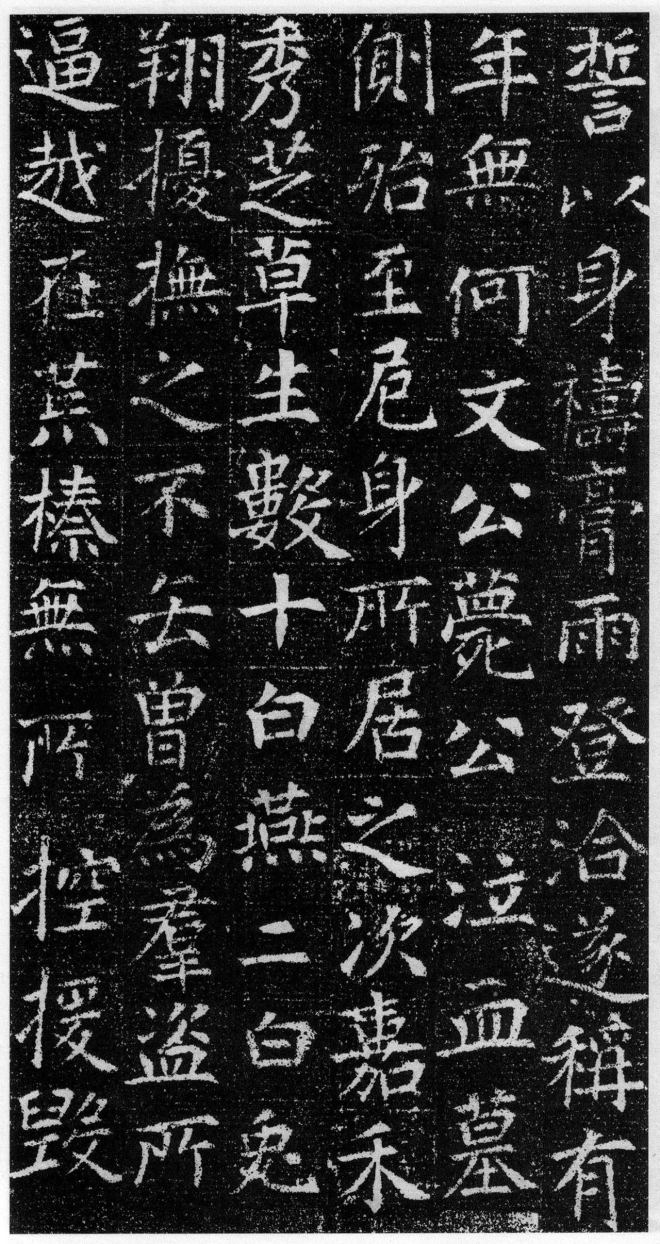 誓以身禱膏雨登洽遂稱有
年無何文公薨公泣血墓
側殆至危身所居之次嘉禾
秀芝草生數十白燕二白兔
翔擾撫之不去曾為羣盜所
逼越在蒸榛無所控援毀